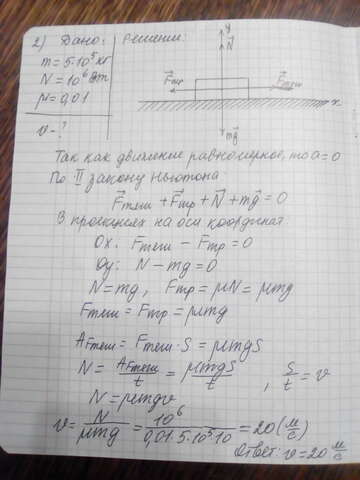 2) Дано: Решение:
m = 5·10⁵ кг
N = 10⁶ Вт
μ = 0,01
v - ?
y
N⃗
F⃗тр
F⃗тяги
x
mg⃗
Так как движение равномерное, то a = 0
По II закону Ньютона:
F⃗тяги + F⃗тр + N⃗ + mg⃗ = 0
В проекциях на оси координат
Ox: Fтяги – Fтр = 0
Oy: N – mg = 0
N = mg, Fтр = μN = μmg
Fтяги = Fтр = μmg
AFтяги = Fтяги · S = μmgS
N = AFтяги/t = μmgS/t, S/t = v
N = μmgv
v = N/μmg = 10⁶/0,01·5·10⁵·10 = 20 (м/с)
Ответ: v = 20 м/с